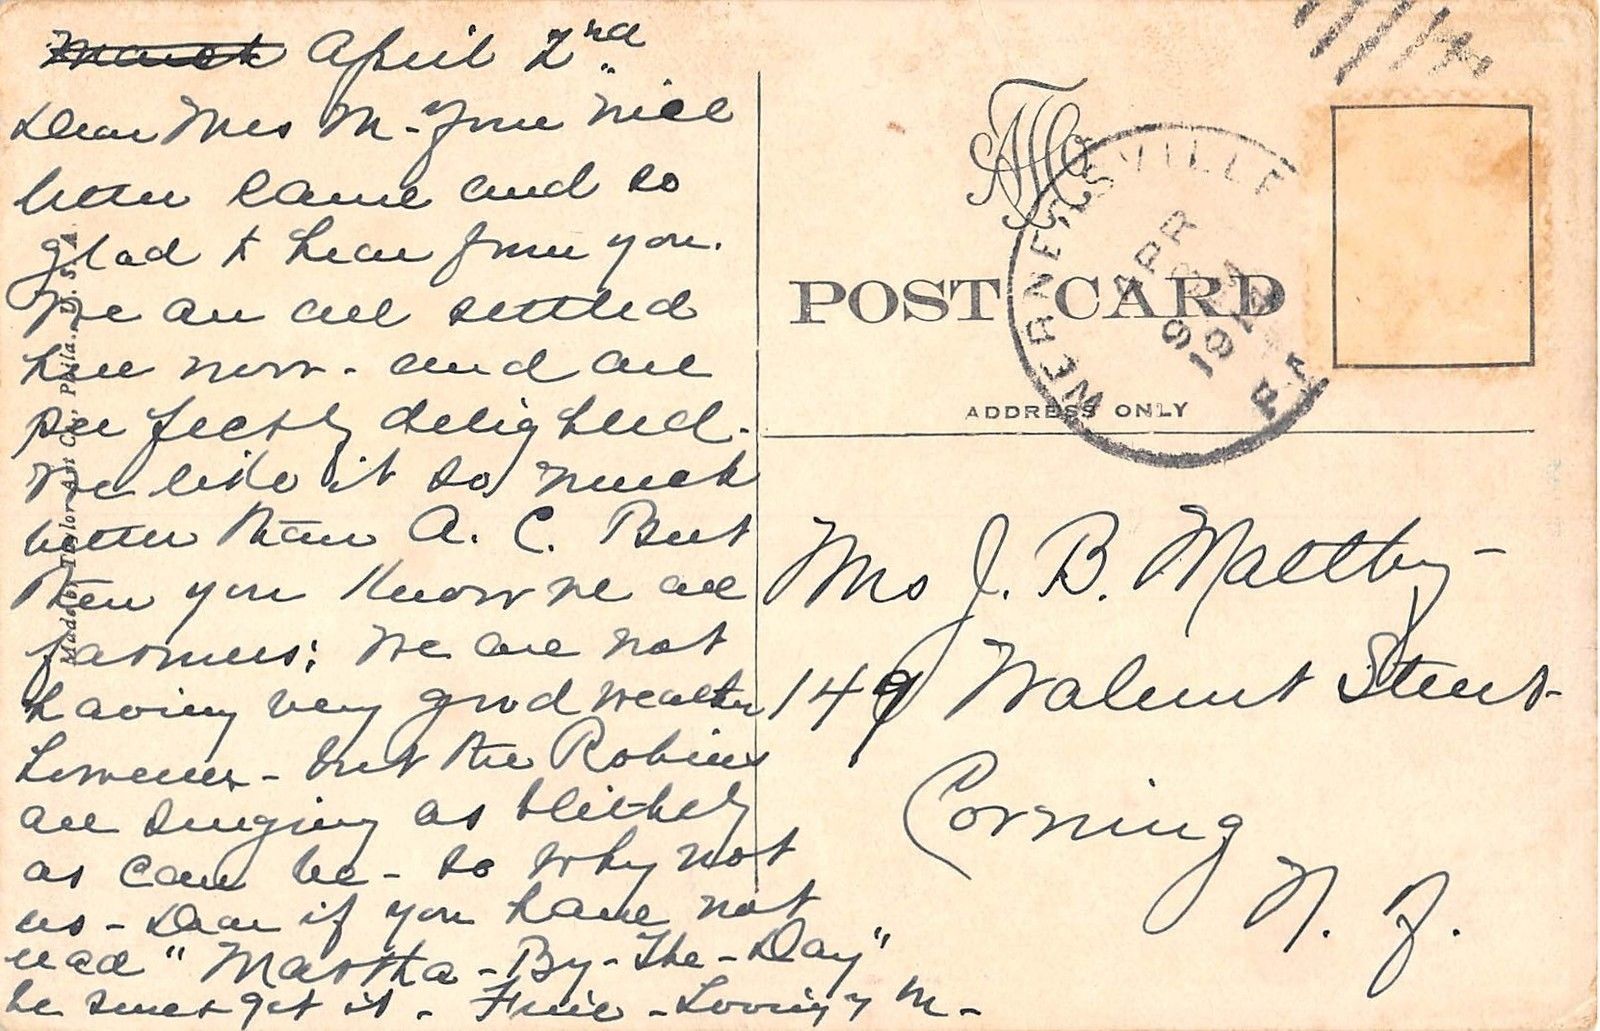 March April 2nd.
Dear Mrs M - Your nice
letter came and so
glad t hear from you.
We are all settled
here now - and are
perfectly delighted -
We like it so much
better than A. C. But
then you know we are
farmers; We are not
having very good weather
however - but the Robins
are singing as blithely
as can be - so why not
us - Dear if you have not
read "Martha - By - The - Day"
be sure & get it - Fine - Lovingly M -
Made by Taylor Art Co., Phila., U. S. A.
POST CARD
ADDRESS ONLY
WERNERSVILLE
APR
9 AM
PA
Mrs J. B. Maltby -
149 Walnut Street -
Corning
N. Y.